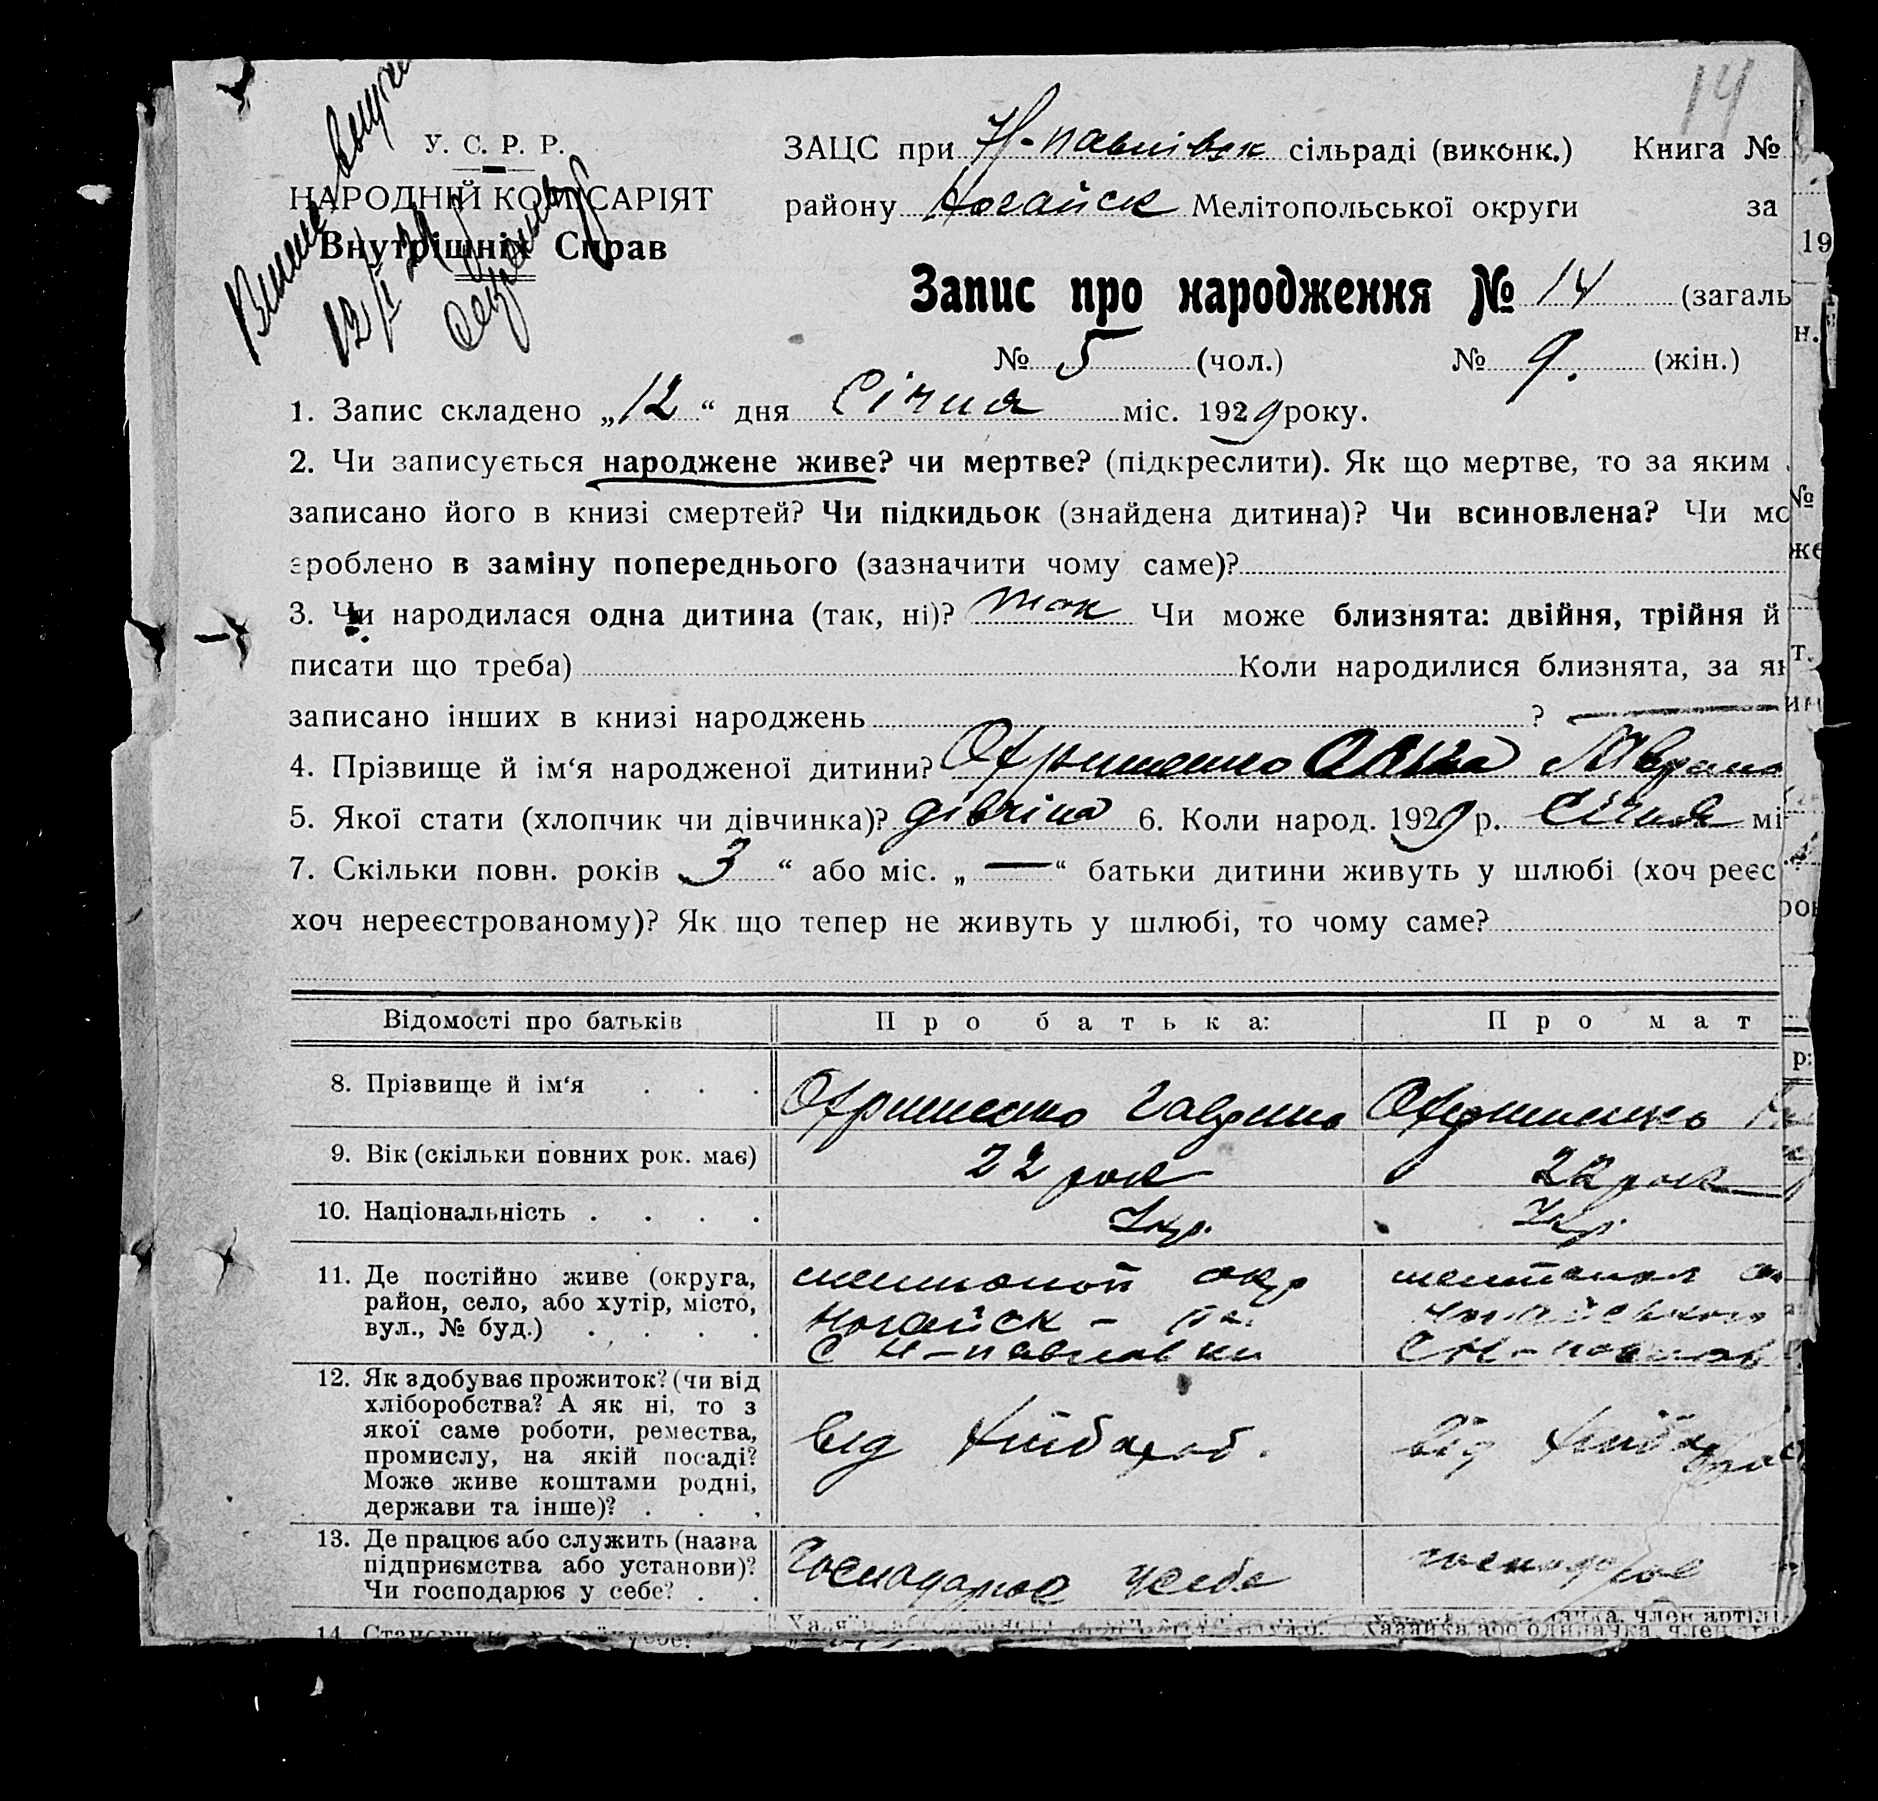 14
У. С. Р. Р.
НАРОДНІЙ КОМІСАРІЯТ
Внутрішніх Справ
ЗАЦС при Н-павлівск сільраді (виконк.) Книга №
району Ногайск Мелітопольської округи за
19
Запис про народження № 14 (загаль
н.
№ 5 (чол.) № 9. (жін.)
1. Запис складено „12“ дня Січня міс. 1929 року.
2. Чи записується народжене живе? чи мертве? (підкреслити). Як що мертве, то за яким
№
записано його в книзі смертей? Чи підкидьок (знайдена дитина)? Чи всиновлена? Чи мо
же
зроблено в заміну попереднього (зазначити чому саме)?
3. Чи народилася одна дитина (так, ні)? так Чи може близнята: двійня, трійня й
т.
писати що треба) Коли народилися близнята, за як
записано інших в книзі народжень ?
4. Прізвище й ім‘я народженої дитини? Охришенко
5. Якої стати (хлопчик чи дівчинка)? дівчіна 6. Коли народ. 1929 р. Січня мі
7. Скільки повн. років „3“ або міс. „—“ батьки дитини живуть у шлюбі (хоч реєс
хоч нереєстрованому)? Як що тепер не живуть у шлюбі, то чому саме?
Відомості про батьків Про батька: Про мат
8. Прізвище й ім‘я . . . Охришенко Гаврило Охришенко
9. Вік (скільки повних рок. має) 22 рок 22 рок
10. Національність . . . . Укр. Укр.
11. Де постійно живе (округа, район, село, або хутір, місто, вул., № буд.) . . . . мелитопол окр
Ногайск
С Н-павловки
12. Як здобуває прожиток? (чи від хліборобства? А як ні, то з якої саме роботи, ремества, промислу, на якій посаді? Може живе коштами родні, держави та інше)? . . . від хлібороб. від
13. Де працює або служить (назва підприємства або установи)? Чи господарює у себе? . . Господарює у себе господарює